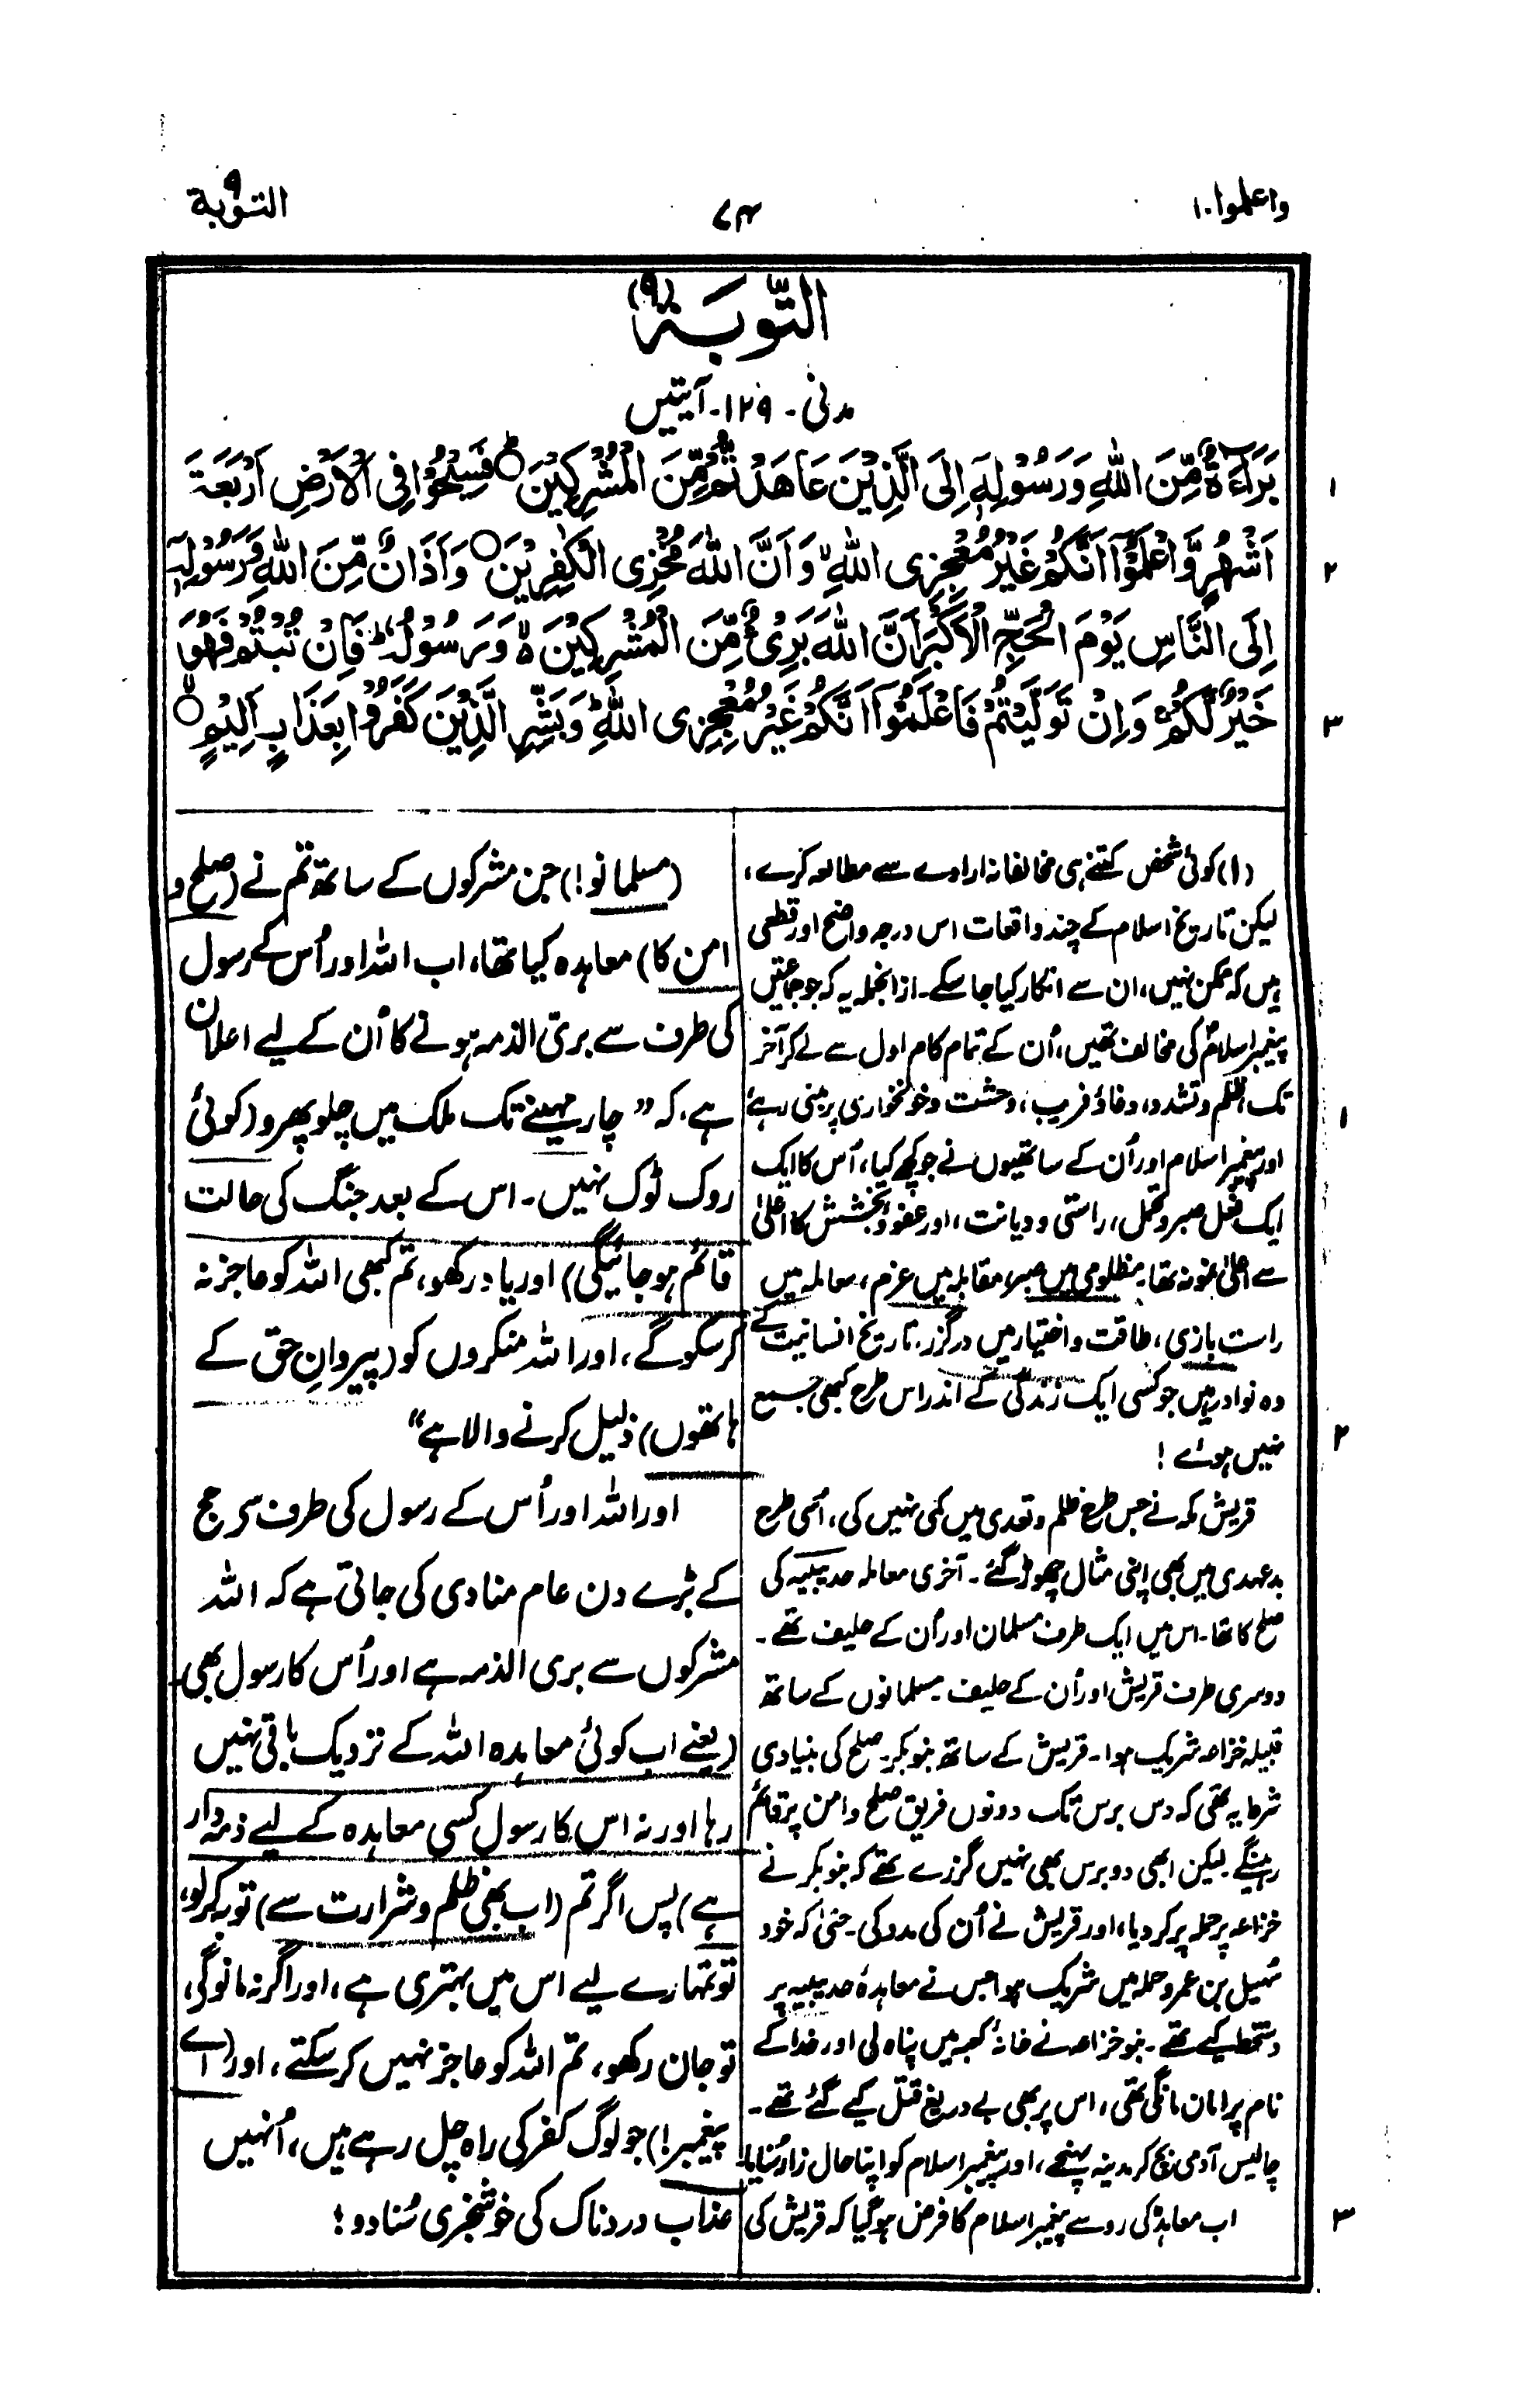 واعلموا ۱۰
۷۴
التوبة ۹
التَّوبَة (۹)
مدنی - ۱۲۹- آیتیں
بَرَآءَةٌ مِّنَ اللّٰهِ وَرَسُوْلِهٖۤ اِلَى الَّذِيْنَ عَاهَدْتُّمْ مِّنَ الْمُشْرِكِيْنَ ○ؕ فَسِيْحُوْا فِى الْاَرْضِ اَرْبَعَةَ
۱
اَشْهُرٍ وَّاعْلَمُوْۤا اَنَّكُمْ غَيْرُ مُعْجِزِى اللّٰهِ ۙ وَاَنَّ اللّٰهَ مُخْزِى الْكٰفِرِيْنَ ○ وَاَذَانٌ مِّنَ اللّٰهِ وَرَسُوْلِهٖۤ
۲
اِلَى النَّاسِ يَوْمَ الْحَجِّ الْاَكْبَرِ اَنَّ اللّٰهَ بَرِىْٓءٌ مِّنَ الْمُشْرِكِيْنَ ۙ۬ وَرَسُوْلُهٗ ؕ فَاِنْ تُبْتُمْ فَهُوَ
خَيْرٌ لَّكُمْ ۚ وَاِنْ تَوَلَّيْتُمْ فَاعْلَمُوْۤا اَنَّكُمْ غَيْرُ مُعْجِزِى اللّٰهِ ؕ وَبَشِّرِ الَّذِيْنَ كَفَرُوْا بِعَذَابٍ اَلِيْمٍ ○ۙ
۳
(۱) کوئی شخص کتنے ہی مخالفانہ ارادے سے مطالعہ کرے،
لیکن تاریخ اسلام کے چند واقعات اس درجہ واضح اور قطعی
ہیں کہ ممکن نہیں، ان سے انکار کیا جا سکے۔ ازانجملہ یہ کہ جو جماعتیں
پیغمبر اسلام کی مخالف تھیں، اُن کے تمام کام اول سے لے کر آخر
تک، ظلم و تشدد، دغا و فریب، وحشت و خونخواری پر مبنی رہے
اور پیغمبر اسلام اور اُن کے ساتھیوں نے جو کچھ کیا، اُس کا ایک
ایک فعل صبر و تحمل، راستی و دیانت، اور عفو و بخشش کا اعلیٰ
سے اعلیٰ نمونہ تھا۔ مظلومی میں صبر، مقابلہ میں عزم، معاملہ میں
راست بازی، طاقت و اختیار میں درگزر، تاریخ انسانیت کے
وہ نوادر ہیں جو کسی ایک زندگی کے اندر اس طرح کبھی جمع
نہیں ہوئے !
قریش مکہ نے جس طرح ظلم و تعدی میں کمی نہیں کی، اُسی طرح
بدعہدی میں بھی اپنی مثال چھوڑ گئے۔ آخری معاملہ حدیبیہ کی
صلح کا تھا۔ اس میں ایک طرف مسلمان اور اُن کے حلیف تھے۔
دوسری طرف قریش اور اُن کے حلیف۔ مسلمانوں کے ساتھ
قبیلہ خزاعہ شریک ہوا۔ قریش کے ساتھ بنو بکر۔ صلح کی بنیادی
شرط یہ تھی کہ دس برس تک دونوں فریق صلح و امن پر قائم
رہینگے۔ لیکن ابھی دو برس بھی نہیں گزرے تھے کہ بنو بکر نے
خزاعہ پر حملہ پر کر دیا، اور قریش نے اُن کی مدد کی۔ حتیٰ کہ خود
سُہیل بن عمرو حملہ میں شریک ہوا جس نے معاہدۂ حدیبیہ پر
دستخط کیے تھے۔ بنو خزاعہ نے خانۂ کعبہ میں پناہ لی اور خدا کے
نام پر امان مانگی تھی، اس پر بھی بے دریغ قتل کیے گئے تھے۔
چالیس آدمی بچ کر مدینہ پہنچے، اور پیغمبر اسلام کو اپنا حال زار سُنایا۔
اب معاہدہ کی رو سے پیغمبر اسلام کا فرض ہو گیا کہ قریش کی
(مسلمانو!) جن مشرکوں کے ساتھ تم نے (صلح و
امن کا) معاہدہ کیا تھا، اب اللہ اور اُس کے رسول
کی طرف سے بریٔ الذمہ ہونے کا اُن کے لیے اعلان
ہے، کہ ”چار مہینے تک ملک میں چلو پھرو (کوئی
۱
روک ٹوک نہیں۔ اس کے بعد جنگ کی حالت
قائم ہو جائیگی) اور یاد رکھو، تم کبھی اللہ کو عاجز نہ
کر سکو گے، اور اللہ منکروں کو (پیروانِ حق کے
ہاتھوں) ذلیل کرنے والا ہے“
۲
اور اللہ اور اُس کے رسول کی طرف سے حج
کے بڑے دن عام منادی کی جاتی ہے کہ اللہ
مشرکوں سے بری الذمہ ہے اور اُس کا رسول بھی۔
(یعنے اب کوئی معاہدہ اللہ کے نزدیک باقی نہیں
رہا اور نہ اس کا رسول کسی معاہدہ کے لیے ذمہ دار
ہے) پس اگر تم (اب بھی ظلم و شرارت سے) توبہ کر لو،
تو تمہارے لیے اس میں بہتری ہے، اور اگر نہ مانو گے،
تو جان رکھو، تم اللہ کو عاجز نہیں کر سکتے، اور (اے
پیغمبر!) جو لوگ کفر کی راہ چل رہے ہیں، اُنہیں
عذاب دردناک کی خوشخبری سُنا دو!
۳